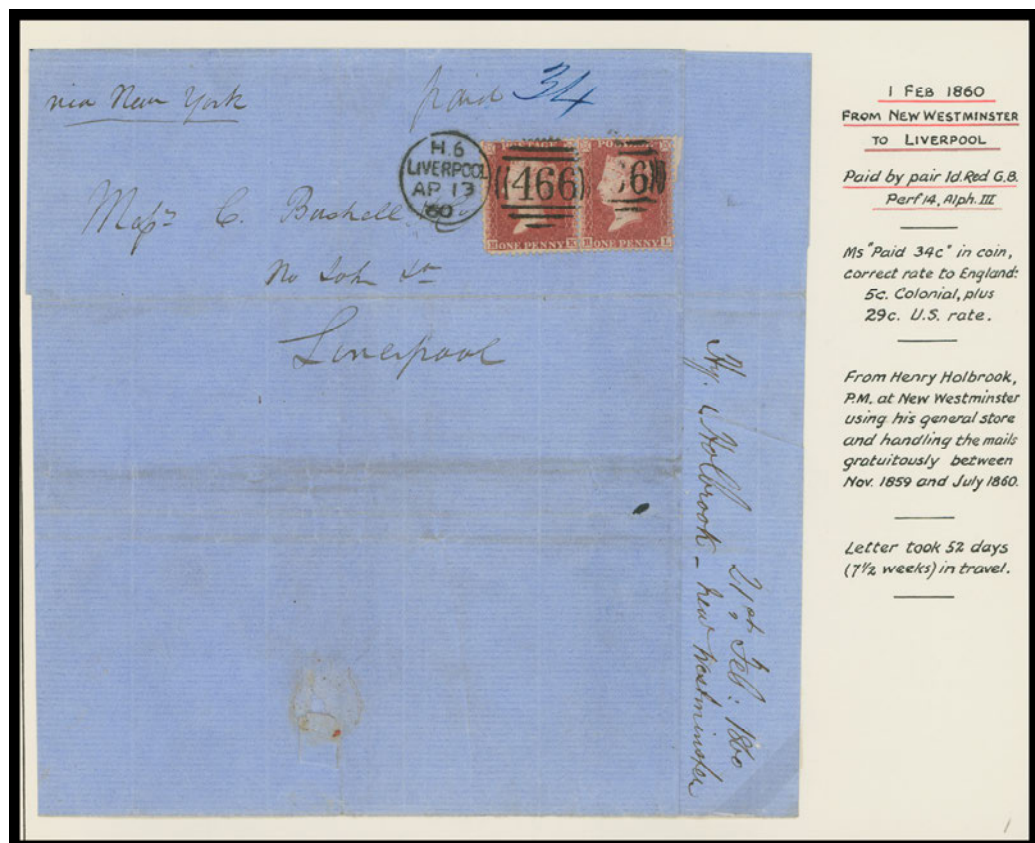 via New York
paid 34
H.6
LIVERPOOL
AP 13
60
466
6
POSTAGE
ONE PENNY
ONE PENNY
Messrs C. Bushell
Liverpool
Hy. Holbrook - New Westminster
21st Feb: 1860
1 FEB 1860
FROM NEW WESTMINSTER
TO LIVERPOOL
Paid by pair 1d. Red G.B.
Perf 14, Alph. III
Ms "Paid 34c" in coin,
correct rate to England:
5c. Colonial, plus
29c. U.S. rate.
From Henry Holbrook,
P.M. at New Westminster
using his general store
and handling the mails
gratuitously between
Nov. 1859 and July 1860.
Letter took 52 days
(7½ weeks) in travel.
1